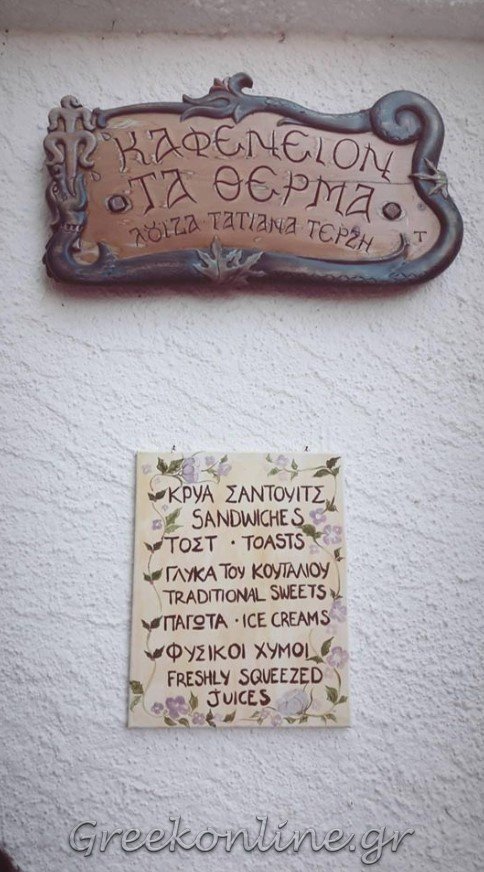 ΚΑΦΕΝΕΙΟΝ
• ΤΑ ΘΕΡΜΑ •
ΛΟΥΙΖΑ • ΤΑΤΙΑΝΑ • ΤΕΡΖΗ
Τ
ΚΡΥΑ ΣΑΝΤΟΥΙΤΣ
SANDWICHES
ΤΟΣΤ • TOASTS
ΓΛΥΚΑ ΤΟΥ ΚΟΥΤΑΛΙΟΥ
TRADITIONAL SWEETS
ΠΑΓΩΤΑ • ICE CREAMS
ΦΥΣΙΚΟΙ ΧΥΜΟΙ
FRESHLY SQUEEZED
JUICES
Greekonline.gr